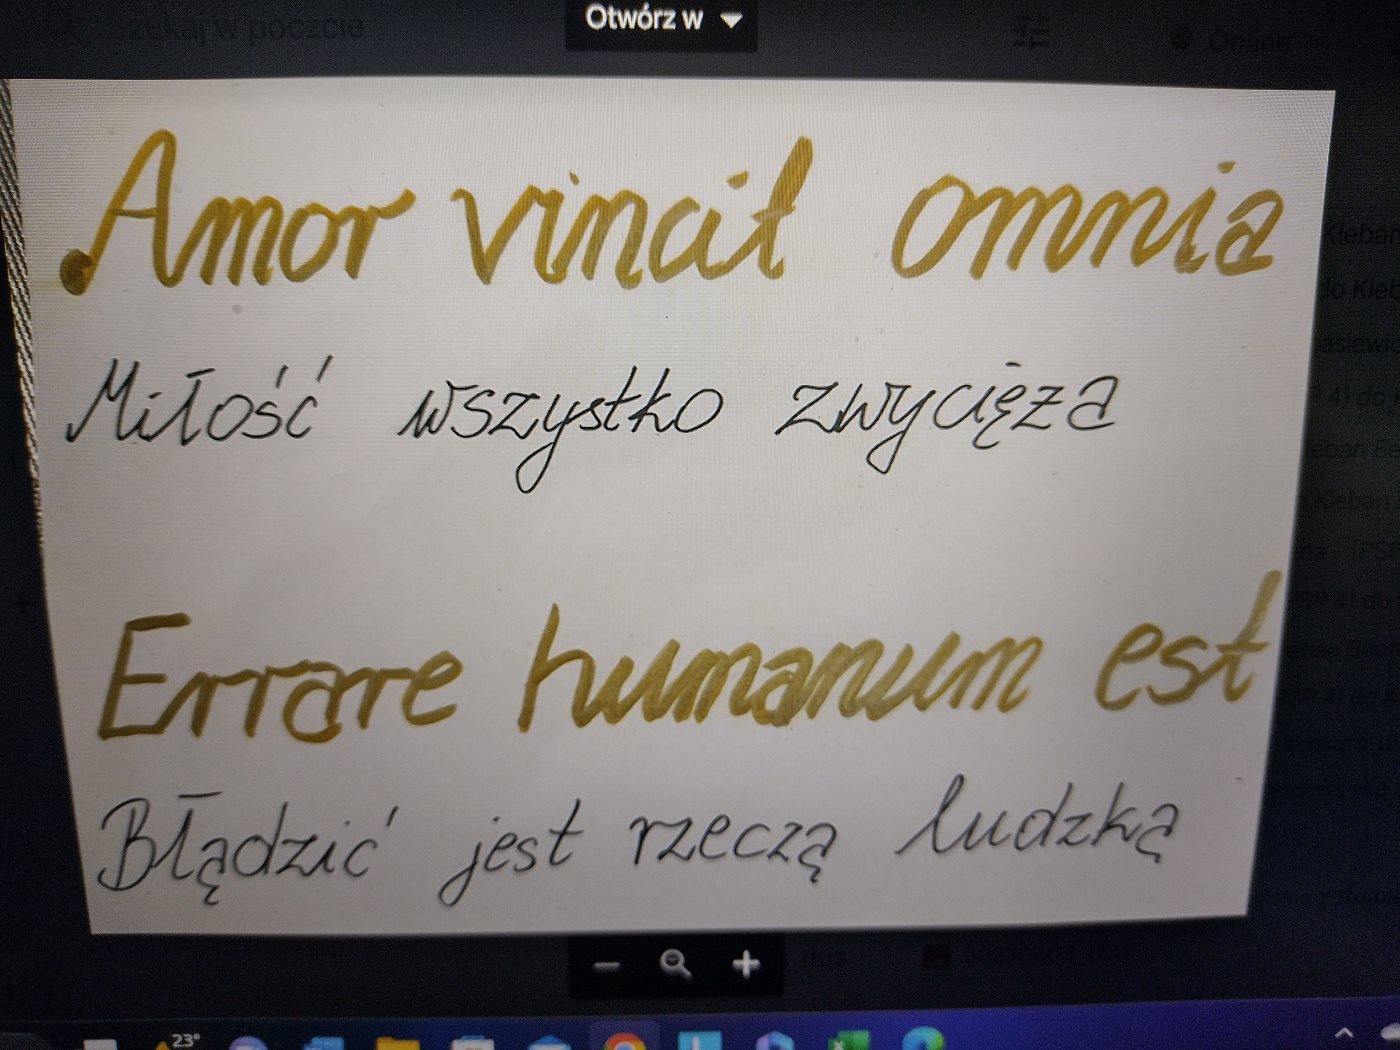 Szukaj w poczcie
Otwórz w
Online
Amor vincit omnia
Kleban
Miłość wszystko zwycięża
Errare humanum est
Błądzić jest rzeczą ludzką
23°